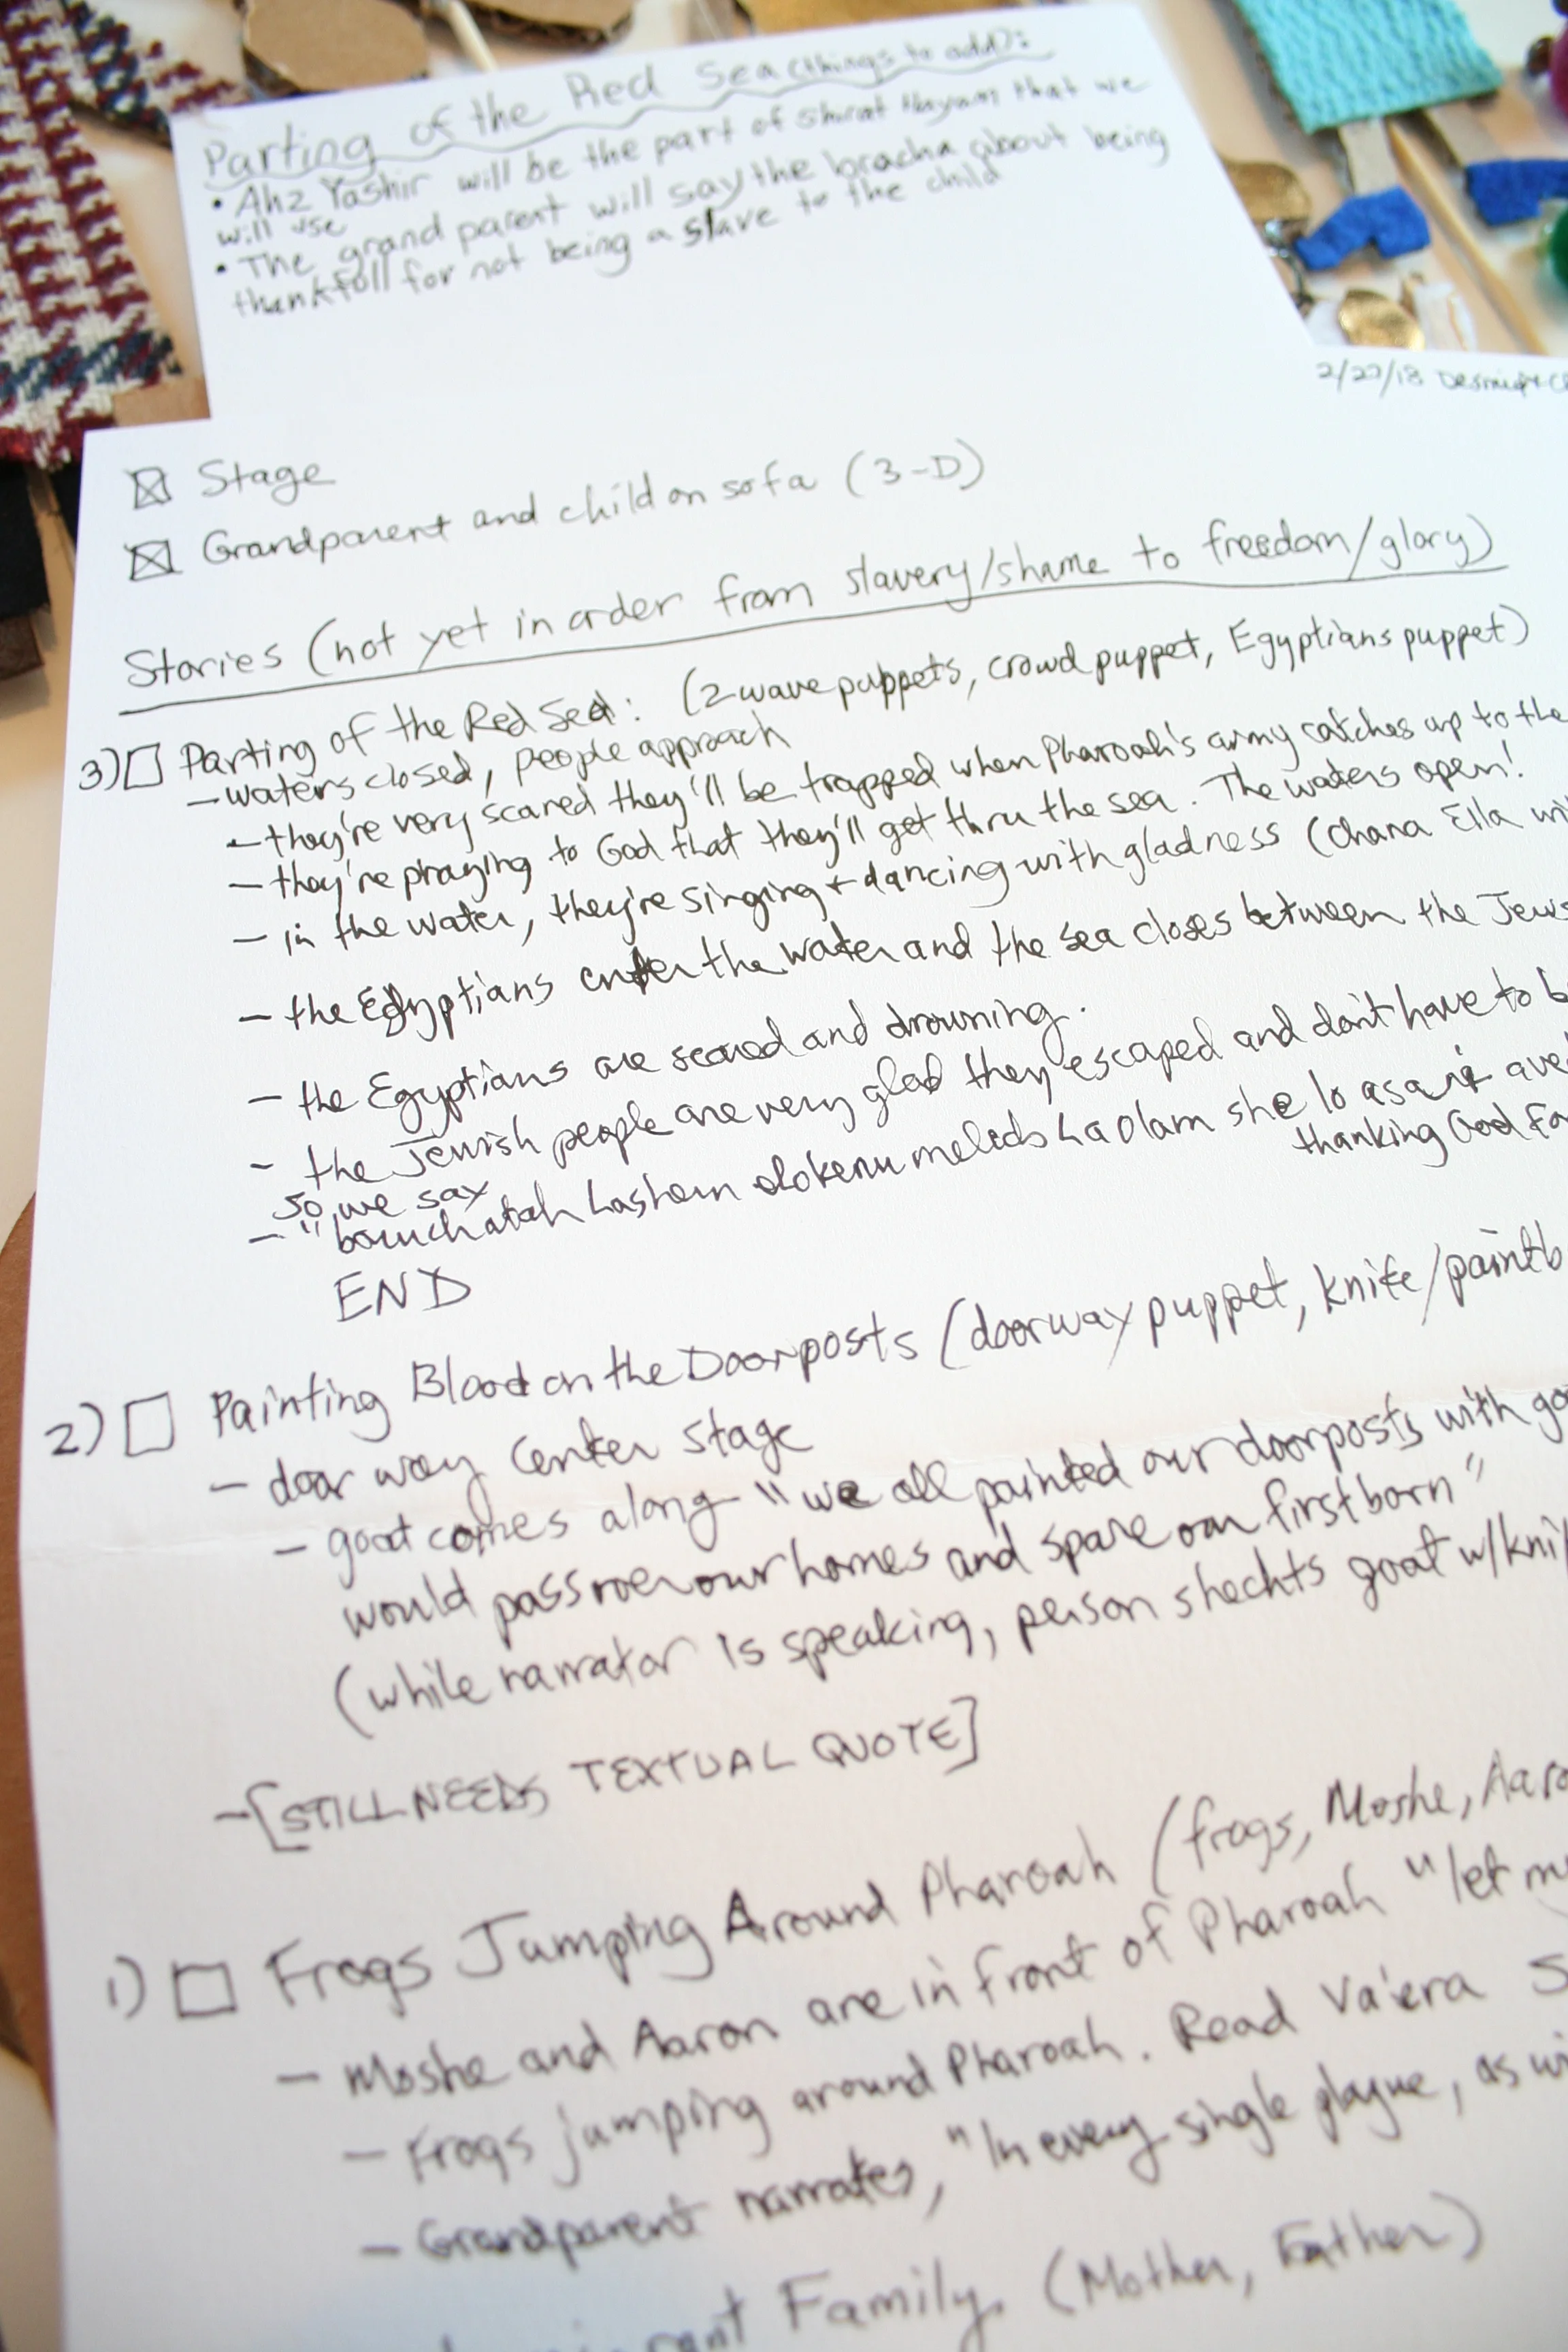 Parting of the Red Sea (things to add):
• Ahz Yashir will be the part of Shirat Hayam that we
will use
• The grand parent will say the bracha about being
thankfull for not being a slave to the child
2/27/18
Stage
Grandparent and child on sofa (3-D)
Stories (not yet in order from slavery/shame to freedom/glory)
3) Parting of the Red Sea: (2 wave puppets, crowd puppet, Egyptians puppet)
- waters closed, people approach
- they're very scared they'll be trapped when Pharoah's army catches up to the
- they're praying to God that they'll get thru the sea. The waters open!
- in the water, they're singing + dancing with gladness (Chana Ella
- the Egyptians enter the water and the sea closes between the Jews
- the Egyptians are scared and drowning.
- the Jewish people are very glad they escaped and don't have to b
so we say
- "boruch atah hashem elokenu melech ha olam she lo asani ave
thanking God for
END
2) Painting Blood on the Doorposts (doorway puppet, knife/paintb
- door way center stage
- goat comes along "we all painted our doorposts with go
would pass over our homes and spare our firstborn"
(while narrator is speaking, person shechts goat w/kni
- [STILL NEEDS TEXTUAL QUOTE]
1) Frogs Jumping Around Pharoah (frogs, Moshe, Aaro
- Moshe and Aaron are in front of Pharoah "let my
- Frogs jumping around Pharoah. Read Va'era
- Grandparent narrates, "In every single plague, as wi
Family (Mother, Father)